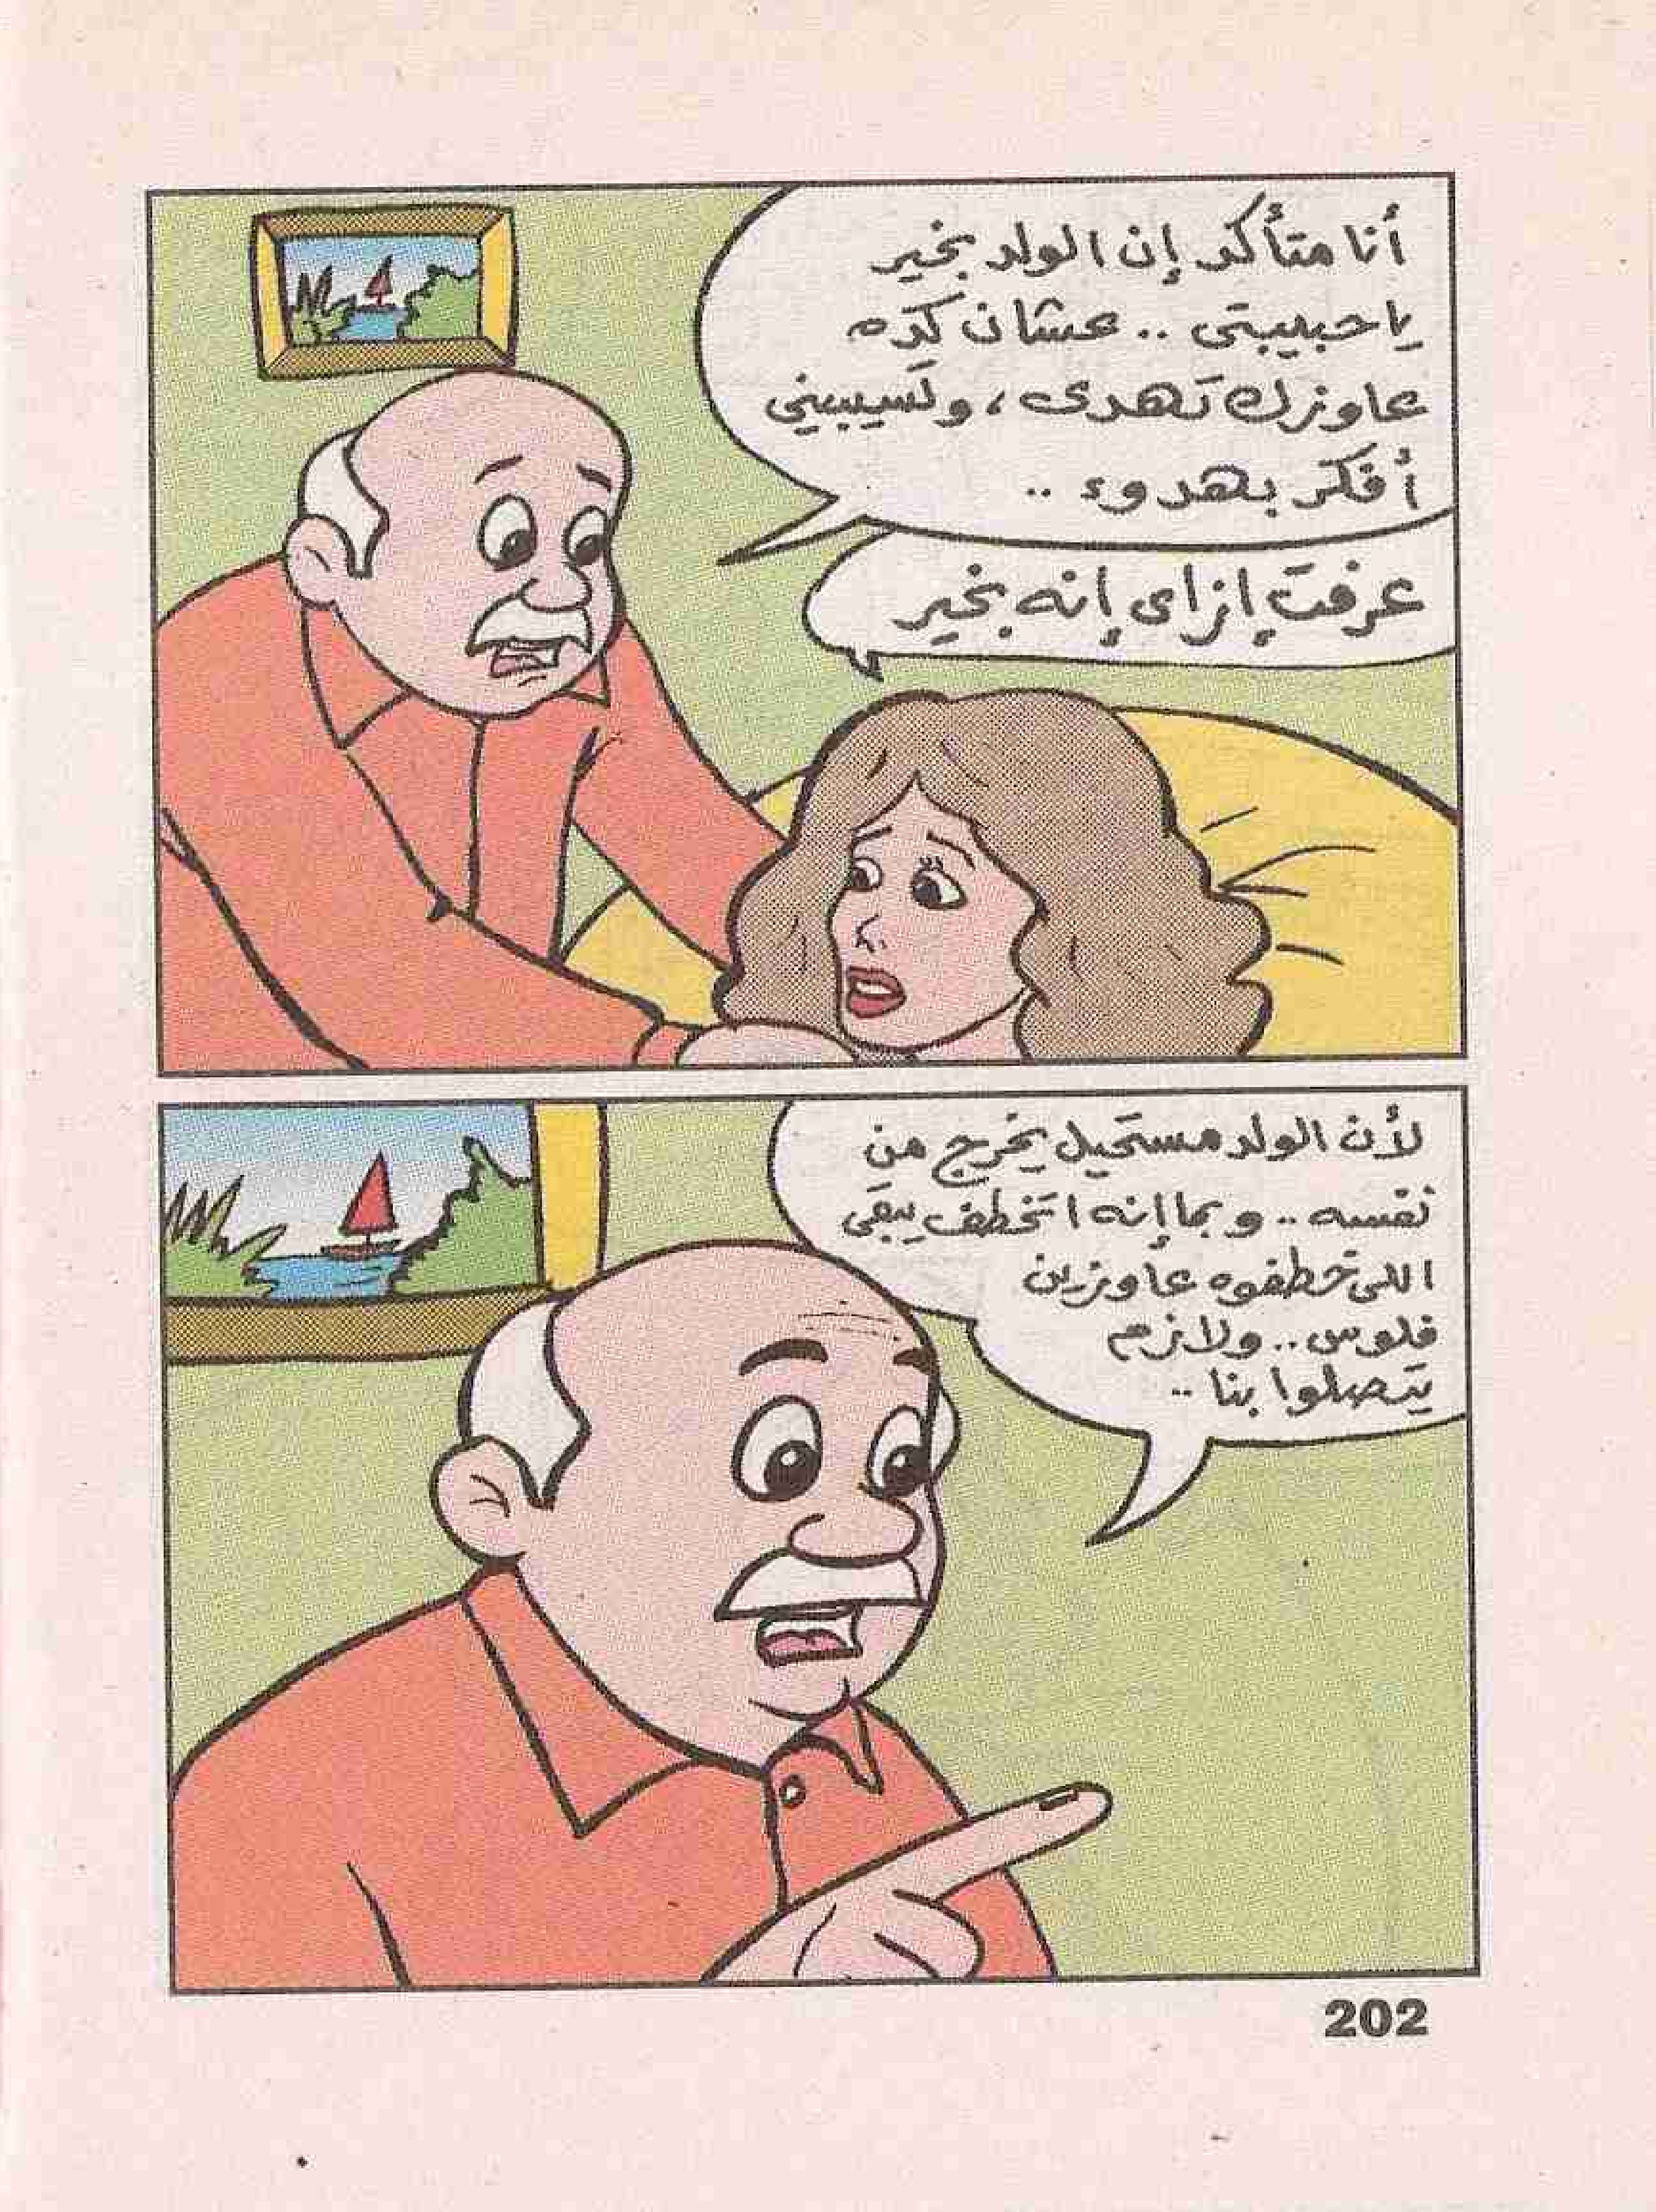 أنا متأكد إن الولد بخير
يا حبيبتى .. عشان كده
عاوزك تهدى ، وتسيبينى
أفكر بهدوء ..
عرفت إزاى إنه بخير
لأن الولد مستحيل يخرج من
نفسه .. وبما إنه اتخطف يبقى
اللى خطفوه عاوزين
فلوس .. ولازم
يتصلوا بنا ..
202